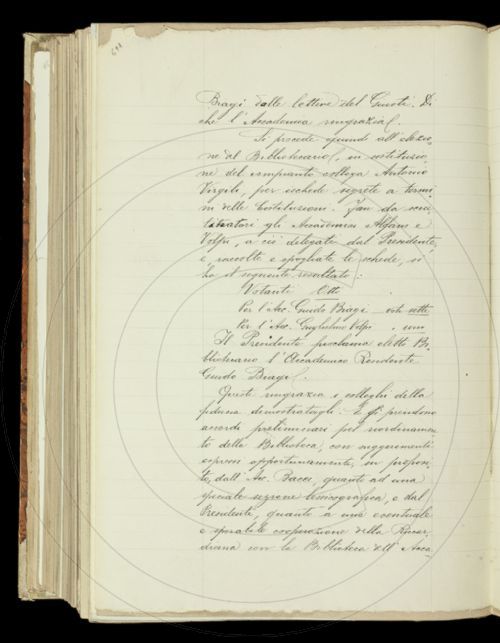 Biagi dalle lettere del Giusti. Di
che l'Accademia ringrazia.
Si procede quindi all'elezio-
ne del Bibliotecario, in sostituzio-
ne del compianto collega Antonio
Virgili, per ischede segrete a termi-
ni delle Costituzioni. Fan da scru-
tinatori gli Accademici Alfani e
Volpi, a ciò delegati dal Presidente,
e, raccolte e spogliate le schede, si
ha il seguente resultato:
Votanti Otto
Per l'Acc. Guido Biagi voti sette
Per l'Acc. Guglielmo Volpi " uno
Il Presidente proclama eletto Bi-
bliotecario l'Accademico Residente
Guido Biagi.
Questi ringrazia i colleghi della
fiducia dimostratagli. E si prendono
accordi preliminari pel riordinamen-
to della Biblioteca, con suggerimenti
espressi opportunamente, in proposi-
to, dall'Acc. Bacci, quanto ad una
speciale sezione lessicografica, e dal
Presidente, quanto a una eventuale
e sperabile cooperazione della Riccar-
diana con la Biblioteca dell'Acca-